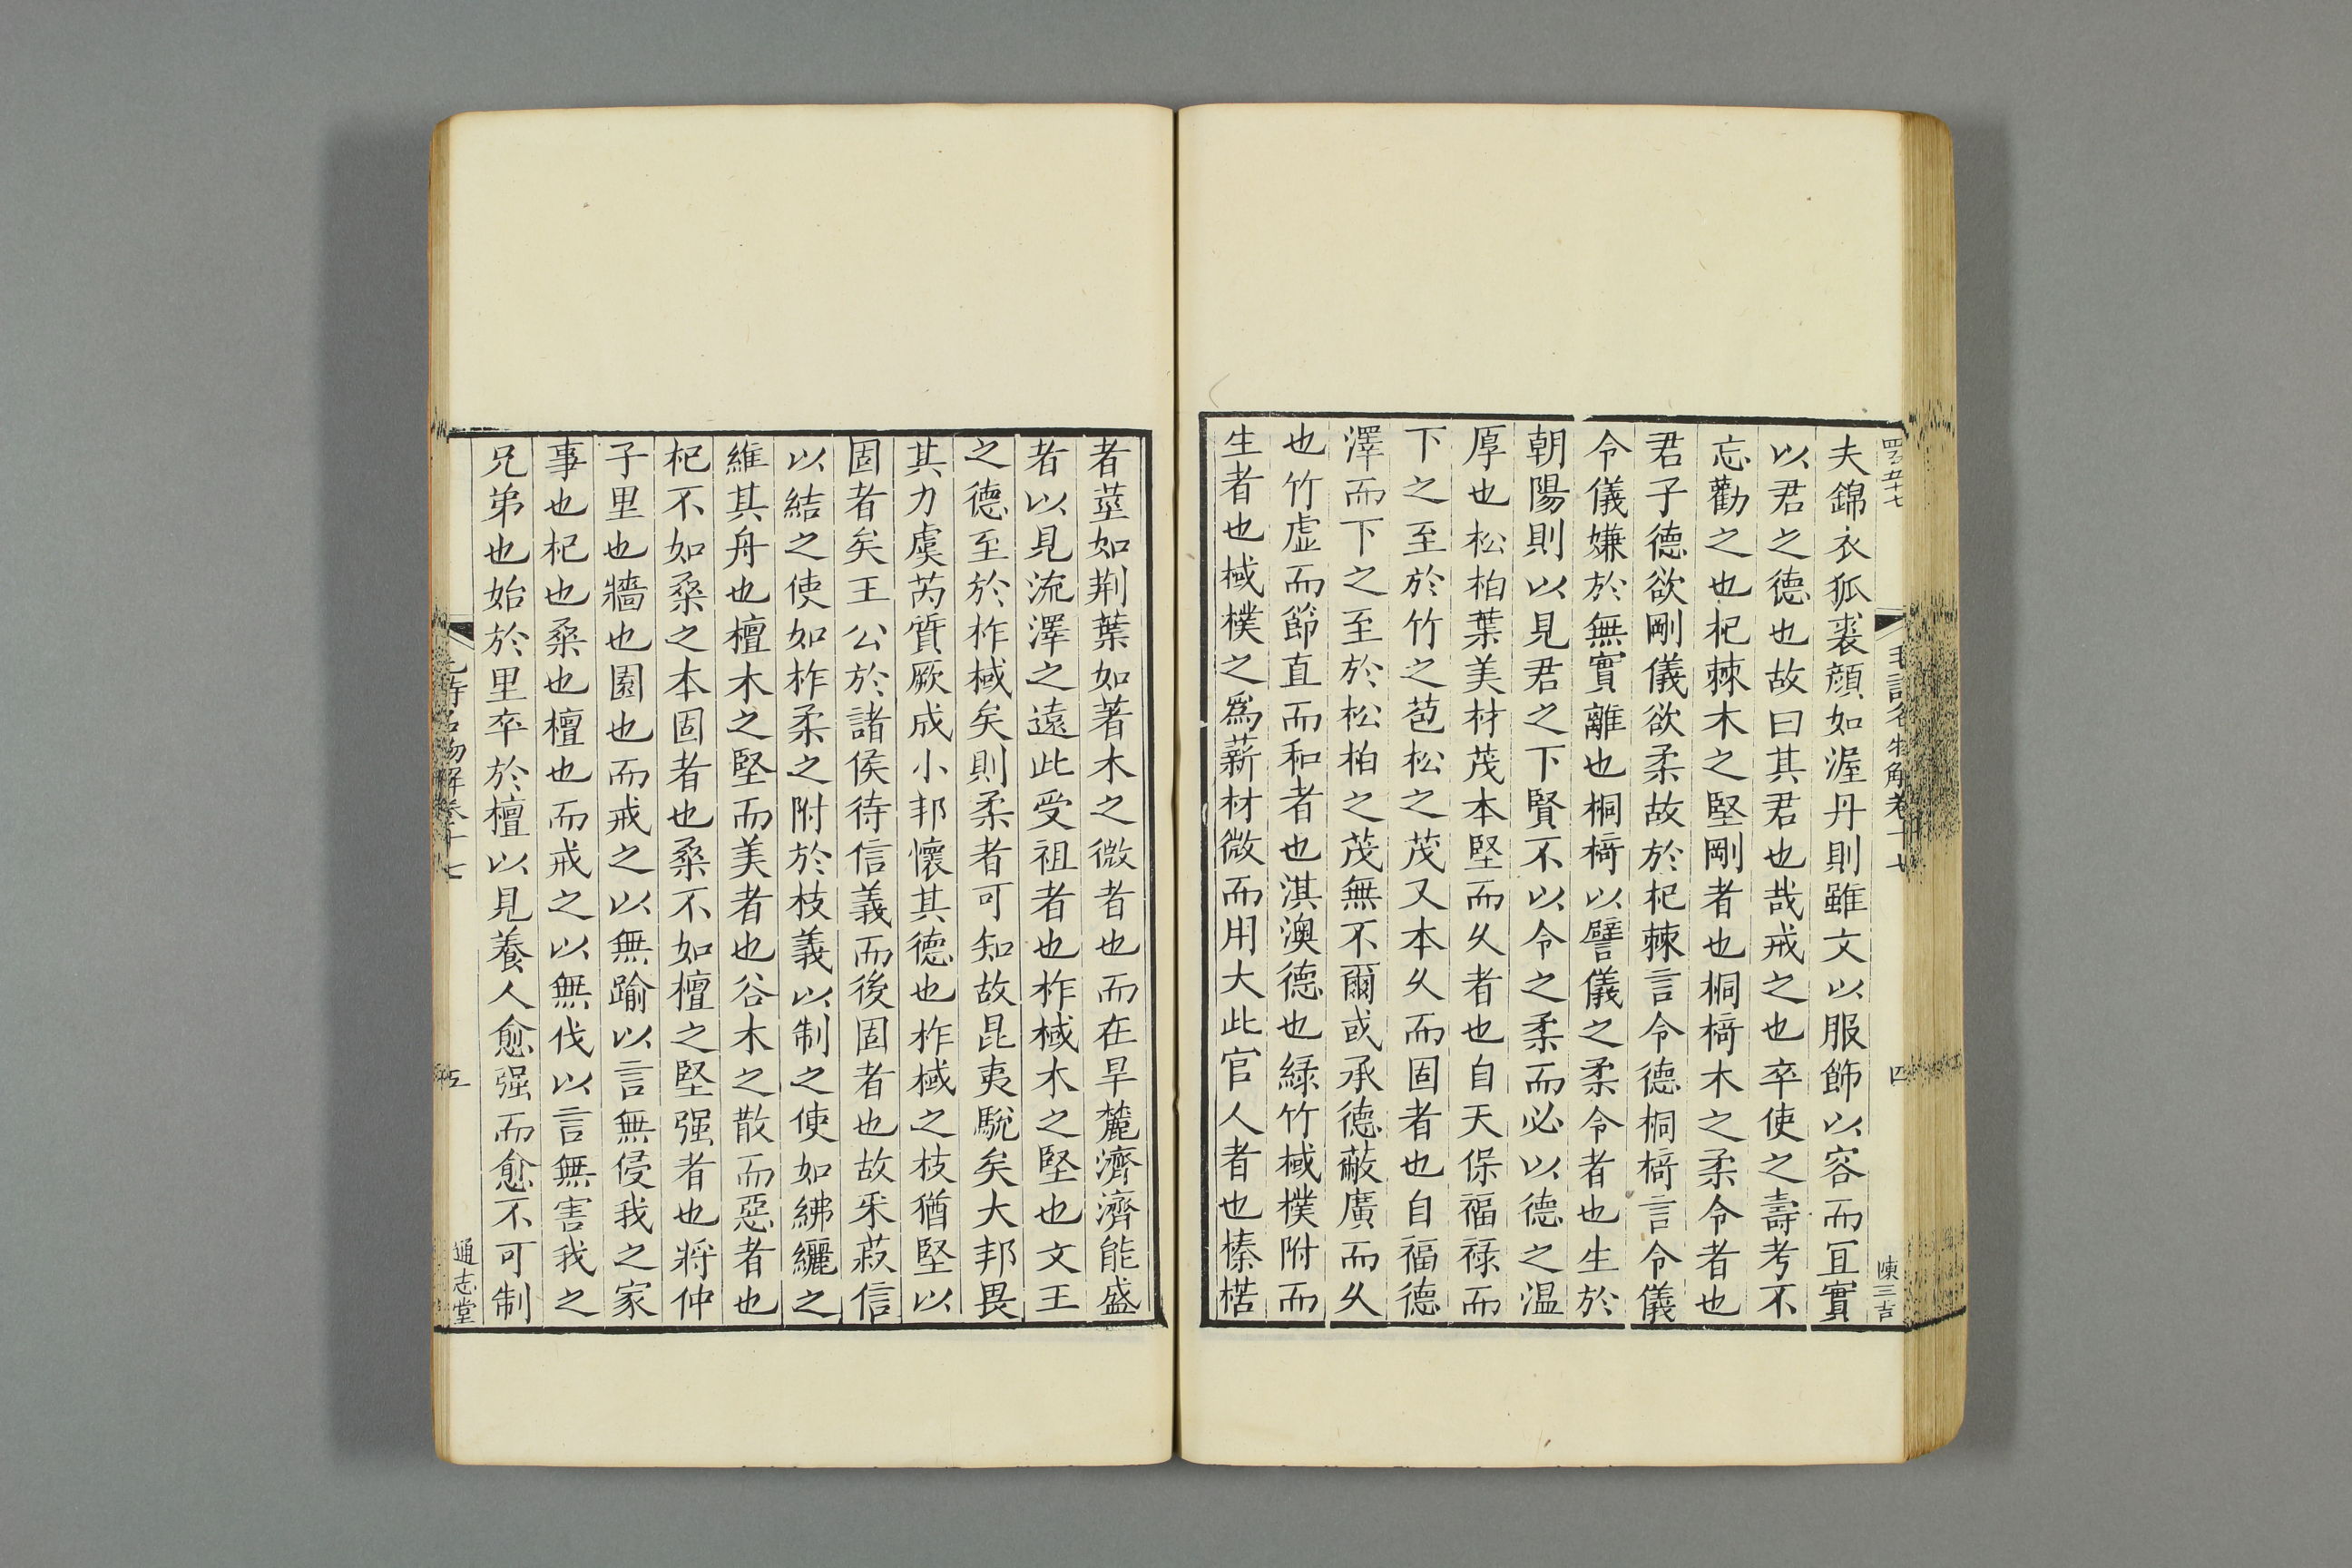 夫錦衣狐裘顔如渥丹則雖文以服飾以容而宜實
以君之德也故曰其君也哉戒之也卒使之壽考不
忘勸之也杞棘木之堅剛者也桐椅木之柔令者也
君子德欲剛儀欲柔故於杞棘言令德桐椅言令儀
令儀嫌於無實離也桐椅以譬儀之柔令者也生於
朝陽則以見君之下賢不以令之柔而必以德之温
厚也松柏葉美材茂本堅而乆者也自天保福禄而
下之至於竹之苞松之茂又本乆而固者也自福德
澤而下之至於松柏之茂無不爾或承德蔽廣而乆
也竹虚而節直而和者也淇澳德也緑竹棫樸附而
生者也棫樸之爲薪材微而用大此官人者也榛楛
者莖如荆葉如蓍木之微者也而在旱麓濟濟能盛
者以見流澤之遠此受祖者也柞棫木之堅也文王
之德至於柞棫矣則柔者可知故昆夷駾矣大邦畏
其力虞芮質厥成小邦懷其德也柞棫之枝猶堅以
固者矣王公於諸侯待信義而後固者也故采菽信
以結之使如柞柔之附於枝義以制之使如紼纚之
維其舟也檀木之堅而美者也谷木之散而惡者也
杞不如桑之本固者也桑不如檀之堅强者也將仲
子里也牆也園也而戒之以無踰以言無侵我之家
事也杞也桑也檀也而戒之以無伐以言無害我之
兄弟也始於里卒於檀以見養人愈强而愈不可制
通志堂
四
陳三吉
五